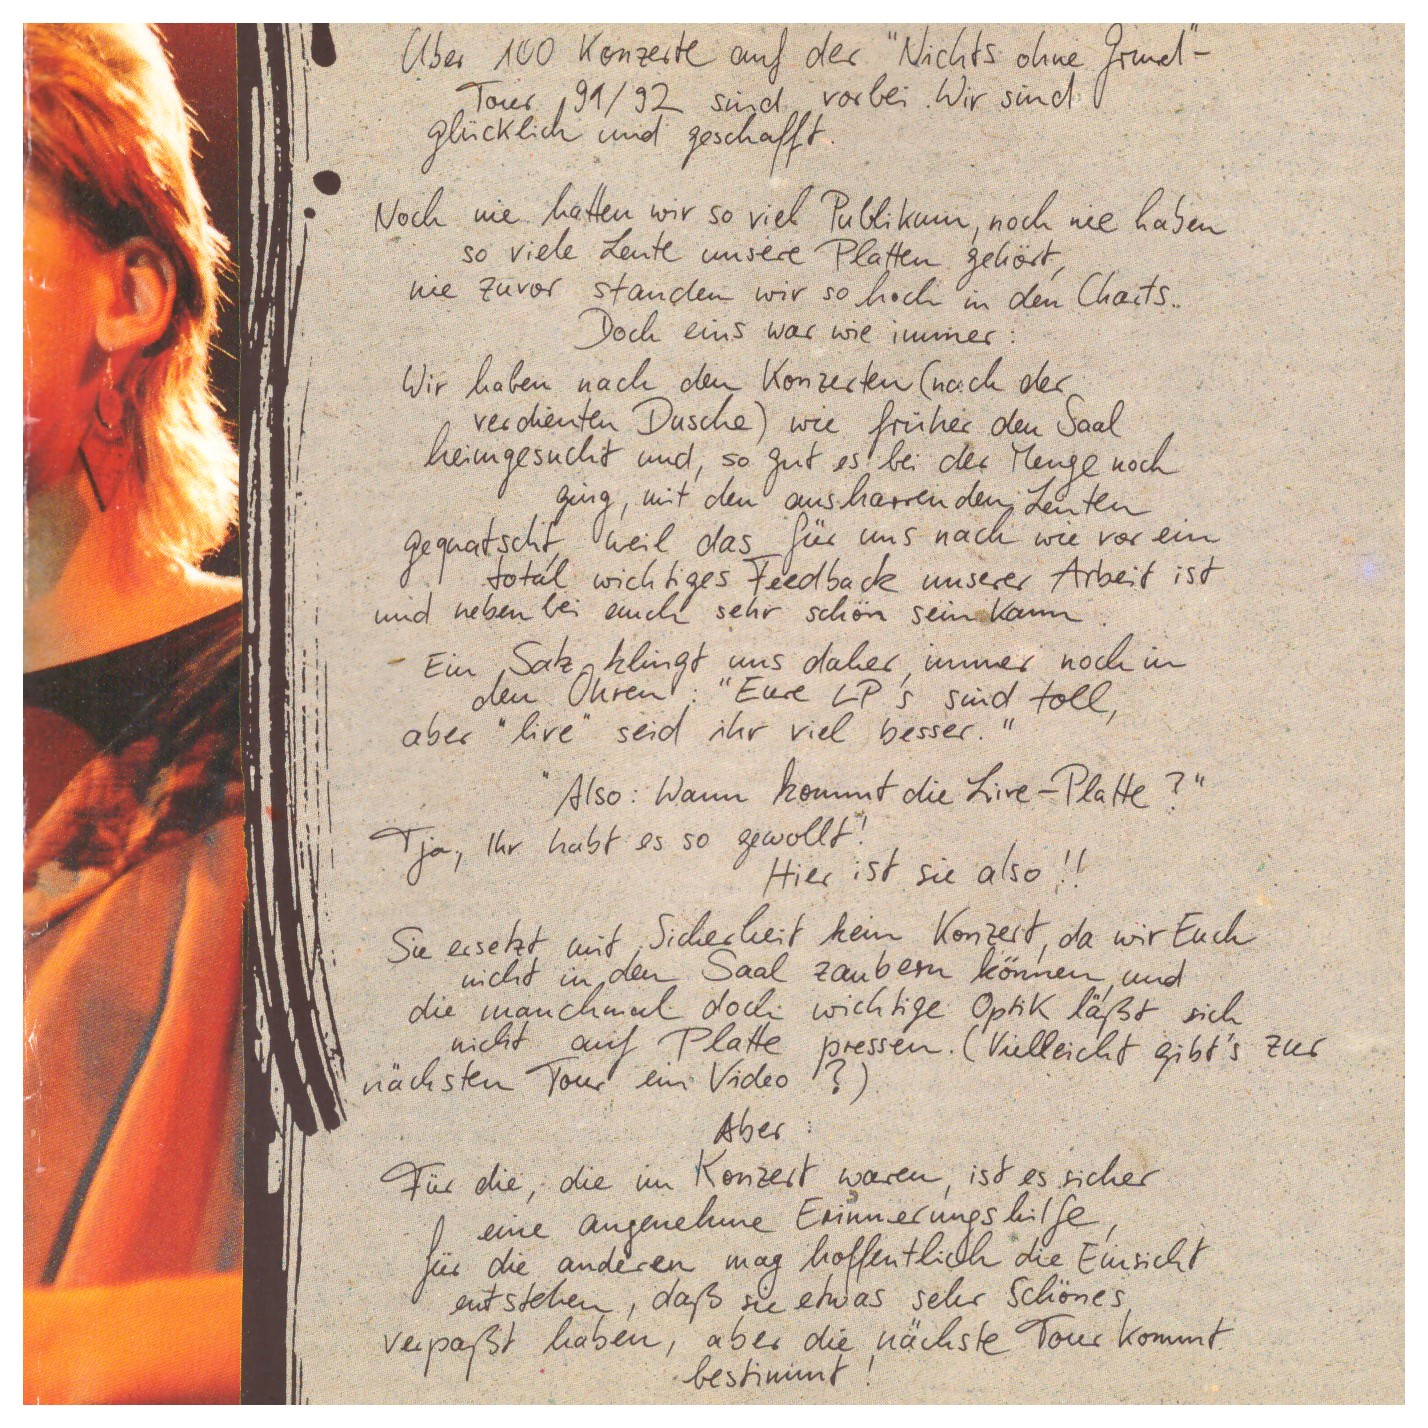 Über 100 Konzerte auf der "Nichts ohne Grund"-
Tour 91/92 sind vorbei. Wir sind
glücklich und geschafft.
Noch nie hatten wir so viel Publikum, noch nie haben
so viele Leute unsere Platten gehört,
nie zuvor standen wir so hoch in den Charts..
Doch eins war wie immer:
Wir haben nach den Konzerten (nach der
verdienten Dusche) wie früher den Saal
heimgesucht und, so gut es bei der Menge noch
ging, mit den ausharrenden Leuten
gequatscht, weil das für uns nach wie vor ein
total wichtiges Feedback unserer Arbeit ist
und nebenbei auch sehr schön sein kann.
Ein Satz klingt uns daher immer noch in
den Ohren: "Eure LP's sind toll,
aber "live" seid ihr viel besser."
"Also: Wann kommt die Live-Platte?"
Tja, Ihr habt es so gewollt!
Hier ist sie also!!
Sie ersetzt mit Sicherheit kein Konzert, da wir Euch
nicht in den Saal zaubern können, und
die manchmal doch wichtige Optik läßt sich
nicht auf Platte pressen. (Vielleicht gibt's zur
nächsten Tour ein Video?)
Aber:
Für die, die im Konzert waren, ist es sicher
eine angenehme Erinnerungshilfe,
für die anderen mag hoffentlich die Einsicht
entstehen, daß sie etwas sehr Schönes
verpaßt haben, aber die nächste Tour kommt
bestimmt!